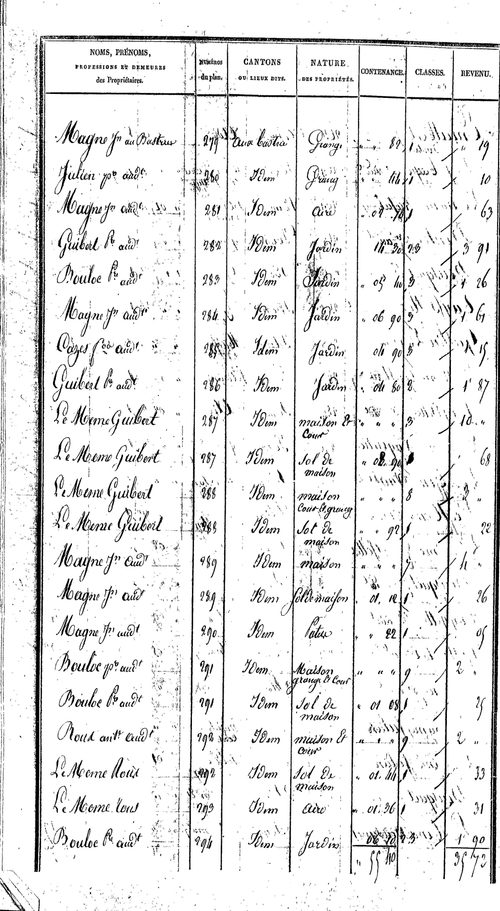 NOMS, PRÉNOMS, PROFESSIONS ET DEMEURES des Propriétaires. NUMÉROS du plan. CANTONS OU LIEUX DITS. NATURE DES PROPRIÉTÉS. CONTENANCE. CLASSES. REVENU.
Magne Jn au Bastrie 279 aux bastrie Grange " " 82 1 " 19
Julien pre audt 280 Idem Grang " " 44 1 " 10
Magne Jn audt 281 Idem aire 1 " 63
Guibert audt 282 Idem Jardin 14 20 2 3 3 91
Bouloc audt 283 Idem Jardin 05 40 3 1 26
Magne Jn audt 284 Idem Jardin 06 90 3 1 61
Cazes audt 285 Idem Jardin 04 90 3 1 15
Guibert audt 286 Idem Jardin 04 80 2 1 87
Le Meme Guibert 287 Idem maison et cour " " 3 10 "
Le Meme Guibert 287 Idem Sol de maison 1 " 68
Le Meme Guibert 288 Idem maison " " 8
Le Meme Guibert 288 Idem Sol de maison " " 92 1 " 22
Magne Jn audt 289 Idem maison " " 7 4 "
Magne Jn audt 289 Idem Sol de maison 01 12 1 " 26
Magne Jn audt 290 Idem Patu " " 22 1 " 05
Bouloc pre audt 291 Idem Maison grange et cour " " " 9 2 "
Bouloc audt 291 Idem Sol de maison " 01 08 1 " 25
Roux ante audt 292 Idem maison et cour " " " 9 2 "
Le Meme Roux 292 Idem Sol de maison " 01 44 1 " 33
Le Meme Roux 293 Idem aire " 01 36 1 " 31
Bouloc audt 294 Idem Jardin 2 3 1 90
" 55 10 35 72